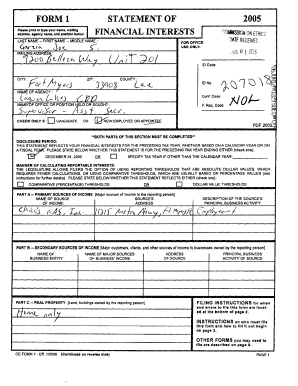 FORM 1 STATEMENT OF 2005
Please print or type your name, mailing address, agency name, and position below:
FINANCIAL INTERESTS
LAST NAME -- FIRST NAME -- MIDDLE NAME:
Garcia Joe S.
FOR OFFICE USE ONLY:
COMMISSION ON ETHICS
DATE RECEIVED
MAILING ADDRESS:
9200 Belleen Way Unit 201
ID Code
CITY: ZIP: COUNTY:
Fort Myers 33908 Lee
ID No. 207013
NAME OF AGENCY:
CDD
Conf. Code
NAME OF OFFICE OR POSITION HELD OR SOUGHT:
Supervisor - Asst. Secr.
P. Req. Code
CHECK ONLY IF CANDIDATE OR NEW EMPLOYEE OR APPOINTEE
PDF 2005
**BOTH PARTS OF THIS SECTION MUST BE COMPLETED**
DISCLOSURE PERIOD:
THIS STATEMENT REFLECTS YOUR FINANCIAL INTERESTS FOR THE PRECEDING TAX YEAR, WHETHER BASED ON A CALENDAR YEAR OR ON A FISCAL YEAR. PLEASE STATE BELOW WHETHER THIS STATEMENT IS FOR THE PRECEDING TAX YEAR ENDING EITHER (check one):
DECEMBER 31, 2005 OR SPECIFY TAX YEAR IF OTHER THAN THE CALENDAR YEAR:
MANNER OF CALCULATING REPORTABLE INTERESTS:
THE LEGISLATURE ALLOWS FILERS THE OPTION OF USING REPORTING THRESHOLDS THAT ARE ABSOLUTE DOLLAR VALUES, WHICH REQUIRES FEWER CALCULATIONS, OR USING COMPARATIVE THRESHOLDS, WHICH ARE USUALLY BASED ON PERCENTAGE VALUES (see instructions for further details). PLEASE STATE BELOW WHETHER THIS STATEMENT REFLECTS EITHER (check one):
COMPARATIVE (PERCENTAGE) THRESHOLDS OR DOLLAR VALUE THRESHOLDS
PART A -- PRIMARY SOURCES OF INCOME [Major sources of income to the reporting person]
NAME OF SOURCE OF INCOME SOURCE'S ADDRESS DESCRIPTION OF THE SOURCE'S PRINCIPAL BUSINESS ACTIVITY
Inc. 11215 Metro Pkwy, Ft Myers Employment
PART B -- SECONDARY SOURCES OF INCOME [Major customers, clients, and other sources of income to businesses owned by the reporting person]
NAME OF BUSINESS ENTITY NAME OF MAJOR SOURCES OF BUSINESS' INCOME ADDRESS OF SOURCE PRINCIPAL BUSINESS ACTIVITY OF SOURCE
PART C -- REAL PROPERTY [Land, buildings owned by the reporting person]
Home only
FILING INSTRUCTIONS for when and where to file this form are located at the bottom of page 2.
INSTRUCTIONS on who must file this form and how to fill it out begin on page 3.
OTHER FORMS you may need to file are described on page 6.
CE FORM 1 - Eff. 1/2006 (Continued on reverse side) PAGE 1